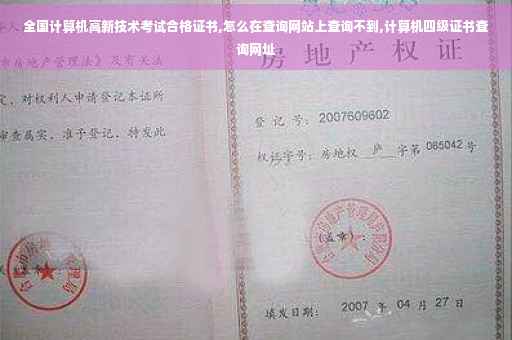 全国计算机高新技术考试合格证书,怎么在查询网站上查询不到,计算机四级证书查
询网址
房地产管理法》及有关法
定，对权利人申请登记本证所
审查属实，准予登记，特发此
房 地 产
登 记 号： 2007609602
权证字号：房地权 庐 字第 085042 号
（盖章）：
填发日期： 2007 年 04 月 27 日